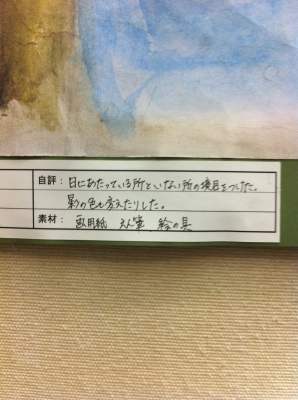 自評：日にあたっている所といない所の境目をつけた。
影の色も変えたりした。
素材：画用紙 えん筆 絵の具